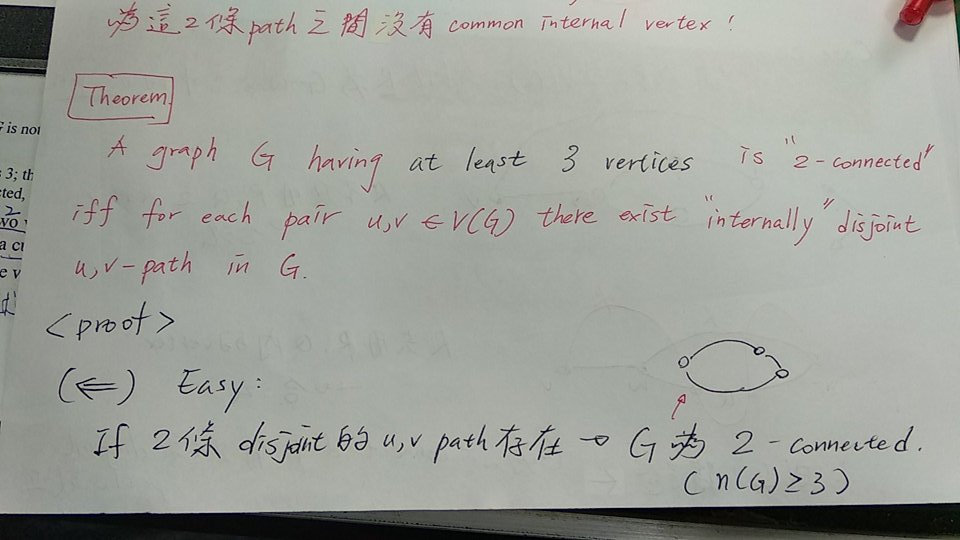 為這2條path之間沒有 common internal vertex!
Theorem
A graph G having at least 3 vertices is "2-connected"
iff for each pair u,v ∈ V(G) there exist "internally" disjoint
u,v-path in G.
<proof>
(⇐) Easy:
If 2條 disjoint的 u,v path存在 → G為 2-connected.
(n(G)≥3)